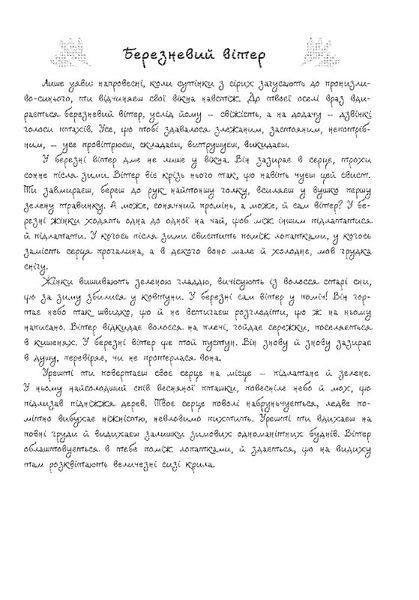 Березневий вітер
Лише уяви: напровесні, коли сутінки з сірих загусають до пронизли-
во-синього, ти відчиняєш свої вікна навстіж. До твоєї оселі враз вди-
рається березневий вітер, услід йому – свіжість, а на додачу – дзвінкі
голоси птахів. Усе, що тобі здавалося злежаним, застояним, непотріб-
ним, – усе провітрюєш, складаєш, витрушуєш, викидаєш.
У березні вітер дме не лише у вікна. Він зазирає в серце, трохи
сонне після зими. Вітер віє крізь нього так, що навіть чуєш цей свист.
Ти завмираєш, береш до рук найтоншу голку, всиляєш у вушко першу
зелену травинку. А може, сонячний промінь, а може, й сам вітер? У бе-
резні жінки ходять одна до одної на чай, щоб між іншим підлататися
й підлатати. У когось після зими свистить поміж лопатками, у когось
замість серця прогалина, а в декого воно мале й холодне, мов грудка
снігу.
Жінки вишивають зеленою гладдю, вичісують із волосся старі сни,
що за зиму збилися у ковтуни. У березні сам вітер у поміч! Він гор-
тає небо так швидко, що й не встигаєш розгледіти, що ж на ньому
написано. Вітер відкидає волосся на плечі, гойдає сережки, поселяється
в кишенях. У березні вітер ще той пустун. Він знову й знову зазирає
в душу, перевіряє, чи не протерлася вона.
Урешті ти повертаєш своє серце на місце – підлатане й зелене.
У ньому найсолодший спів весняної пташки, повесніле небо й мох, що
підлизав підніжжя дерев. Твоє серце поволі набруньчується, ледве по-
мітно вибухає ніжністю, невловимо пихтить. Урешті ти вдихаєш на
повні груди й видихаєш залишки зимових одноманітних буднів. Вітер
облаштовується в тебе поміж лопатками, й здається, що на видиху
там розквітають величезні сизі крила.